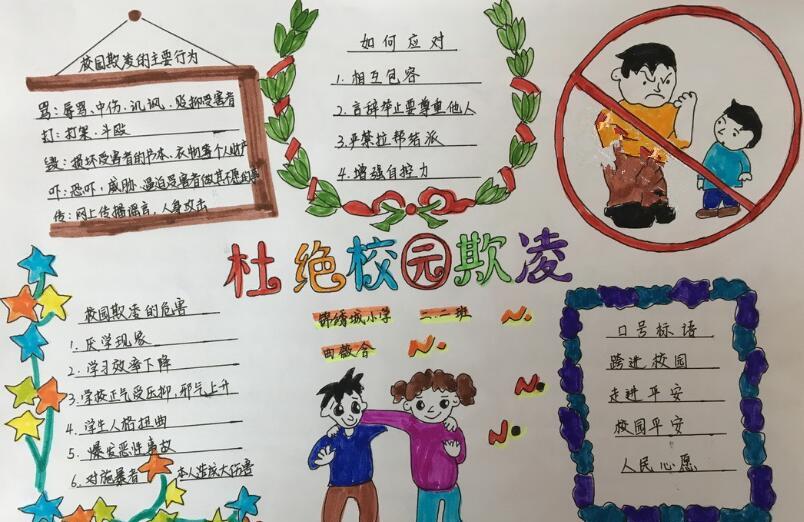 校园欺凌的主要行为
骂：辱骂、中伤、讥讽、贬抑受害者
打：打架、斗殴
毁：损坏受害者的书本、衣物等个人财产
吓：恐吓、威胁、逼迫受害者做其不愿的事
传：网上传播谣言、人身攻击
如何应对
1.相互包容
2.言辞举止要尊重他人
3.严禁拉帮结派
4.增强自控力
杜绝校园欺凌
校园欺凌的危害
1.厌学现象
2.学习效率下降
3.学校正气受压抑，邪气上升
4.学生人格扭曲
5.爆发恶性事故
6.对施暴者 本人造成大伤害
锦绣城小学 二.二班
N.
N.
N.
N.
口号标语
跨进校园
走进平安
校园平安
人民心愿